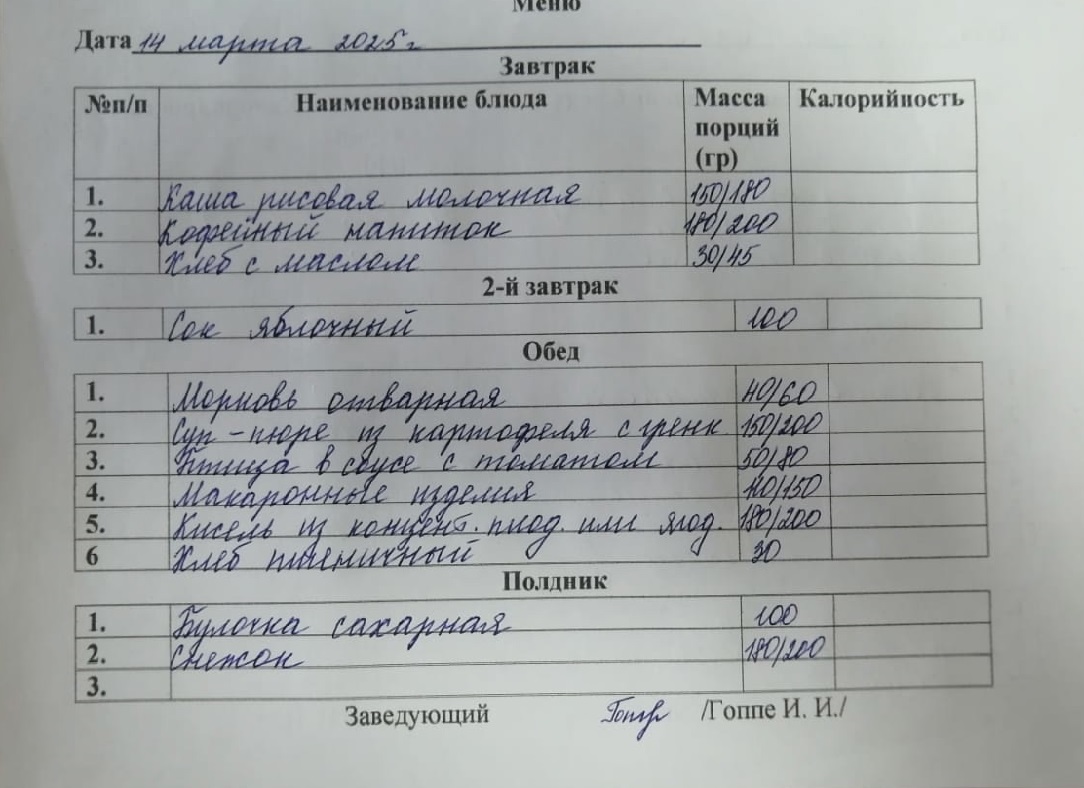 Меню
Дата 14 марта 2025 г
Завтрак
№п/п Наименование блюда Масса порций (гр) Калорийность
1. Каша рисовая молочная 150/180
2. Кофейный напиток 180/200
3. Хлеб с маслом 30/45
2-й завтрак
1. Сок яблочный 100
Обед
1. Морковь отварная 40/60
2. Суп-пюре из картофеля с гренк 150/200
3. Птица в соусе с томатом 50/80
4. Макаронные изделия 110/150
5. Кисель из концент. плод. или ягод. 180/200
6 Хлеб пшеничный 30
Полдник
1. Булочка сахарная 100
2. Снежок 180/200
3.
Заведующий /Гоппе И. И./